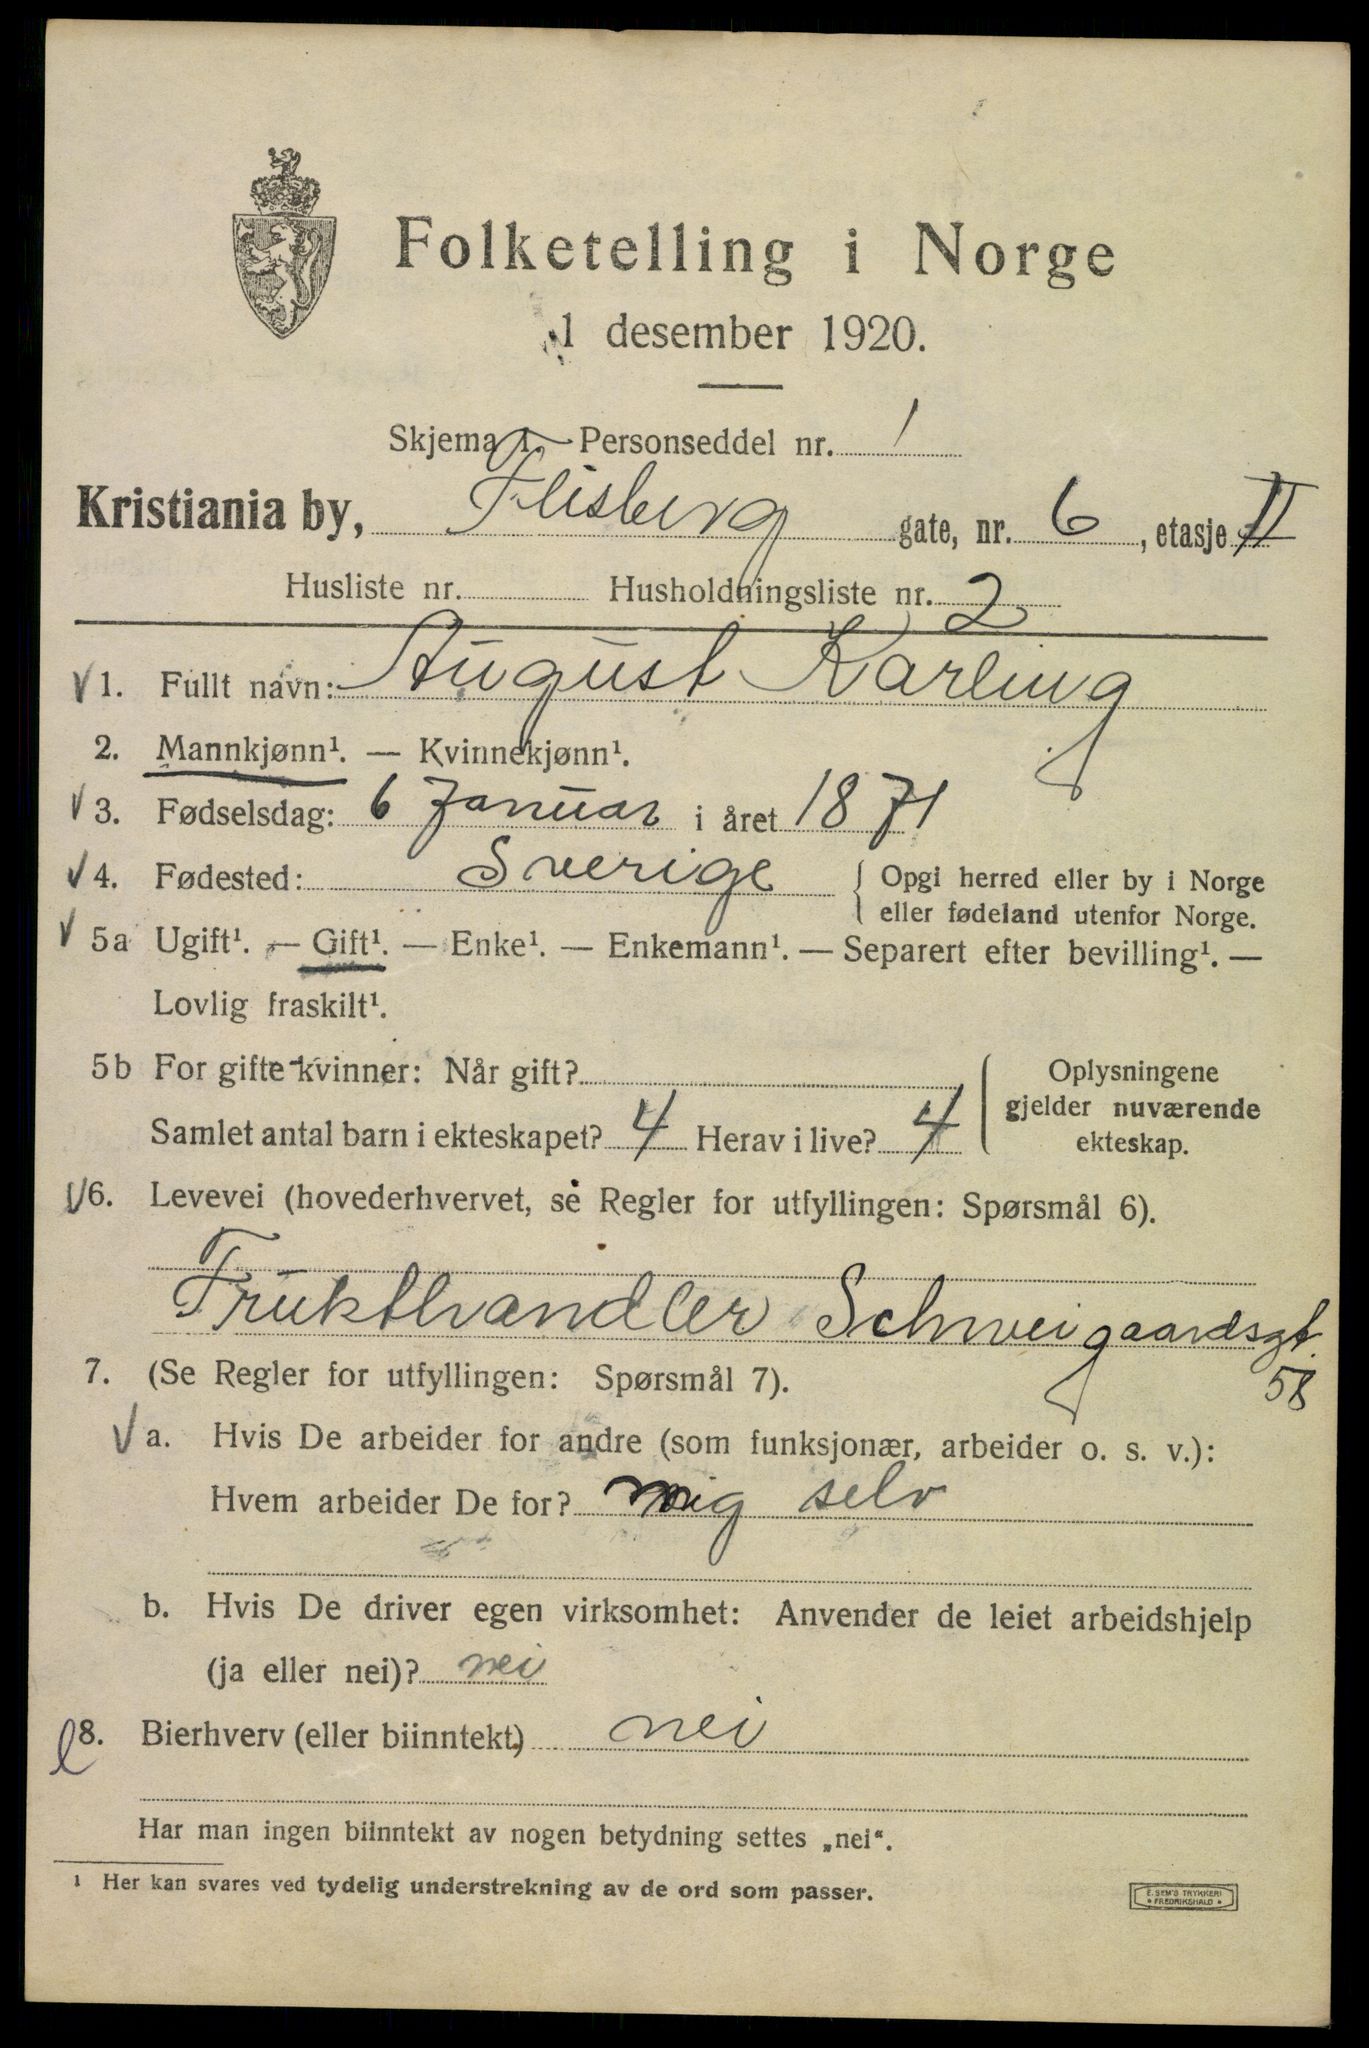 Folketelling i Norge
1 desember 1920.
Skjema 1. Personseddel nr. 1
Kristiania by, Flisberg gate, nr. 6, etasje II
Husliste nr. Husholdningsliste nr. 2
1. Fullt navn: August Karling
2. Mannkjønn¹. — Kvinnekjønn¹.
3. Fødselsdag: 6 Januar i året 1871
4. Fødested: Sverige { Opgi herred eller by i Norge
eller fødeland utenfor Norge.
5a Ugift¹. — Gift¹. — Enke¹. — Enkemann¹. — Separert efter bevilling¹. —
Lovlig fraskilt¹.
5b For gifte kvinner: Når gift?
Samlet antal barn i ekteskapet? 4 Herav i live? 4
Oplysningene
gjelder nuværende
ekteskap.
6. Levevei (hovederhvervet, se Regler for utfyllingen: Spørsmål 6).
Frukthandler Schweigaardsgt.
58
7. (Se Regler for utfyllingen: Spørsmål 7).
a. Hvis De arbeider for andre (som funksjonær, arbeider o. s. v.):
Hvem arbeider De for? mig selv
b. Hvis De driver egen virksomhet: Anvender de leiet arbeidshjelp
(ja eller nei)? nei
8. Bierhverv (eller biinntekt) nei
Har man ingen biinntekt av nogen betydning settes „nei“.
¹ Her kan svares ved tydelig understrekning av de ord som passer.
E. SEM'S TRYKKERI
* FREDRIKSHALD *